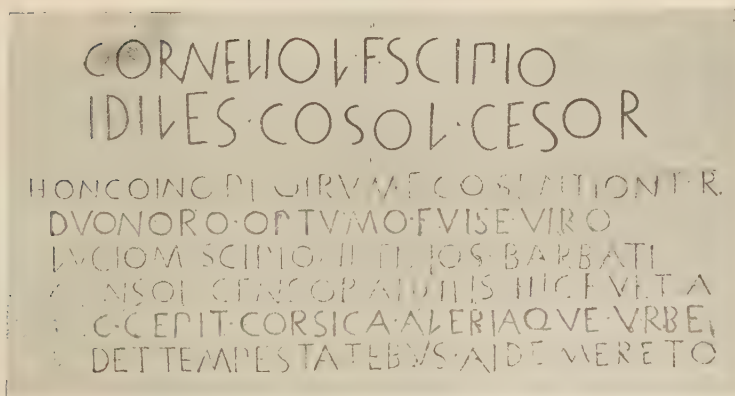 CORNELIO L·F SCIPIO
IDILES·COSOL·CESOR
HONC OINO PLOIRVME COSENTIONT R.
DVONORO·OPTVMO·FVISE·VIRO
LVCIOM SCIPIO FILIOS·BARBATI
NSOL CENSOR AIDILIS HIC FVET A
C·CEPIT·CORSICA·ALERIAQVE·VRBE
DET TEMPESTATEBVS·AIDE MERETO